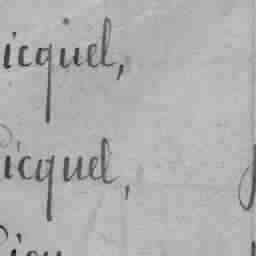 icquel,
icquel,